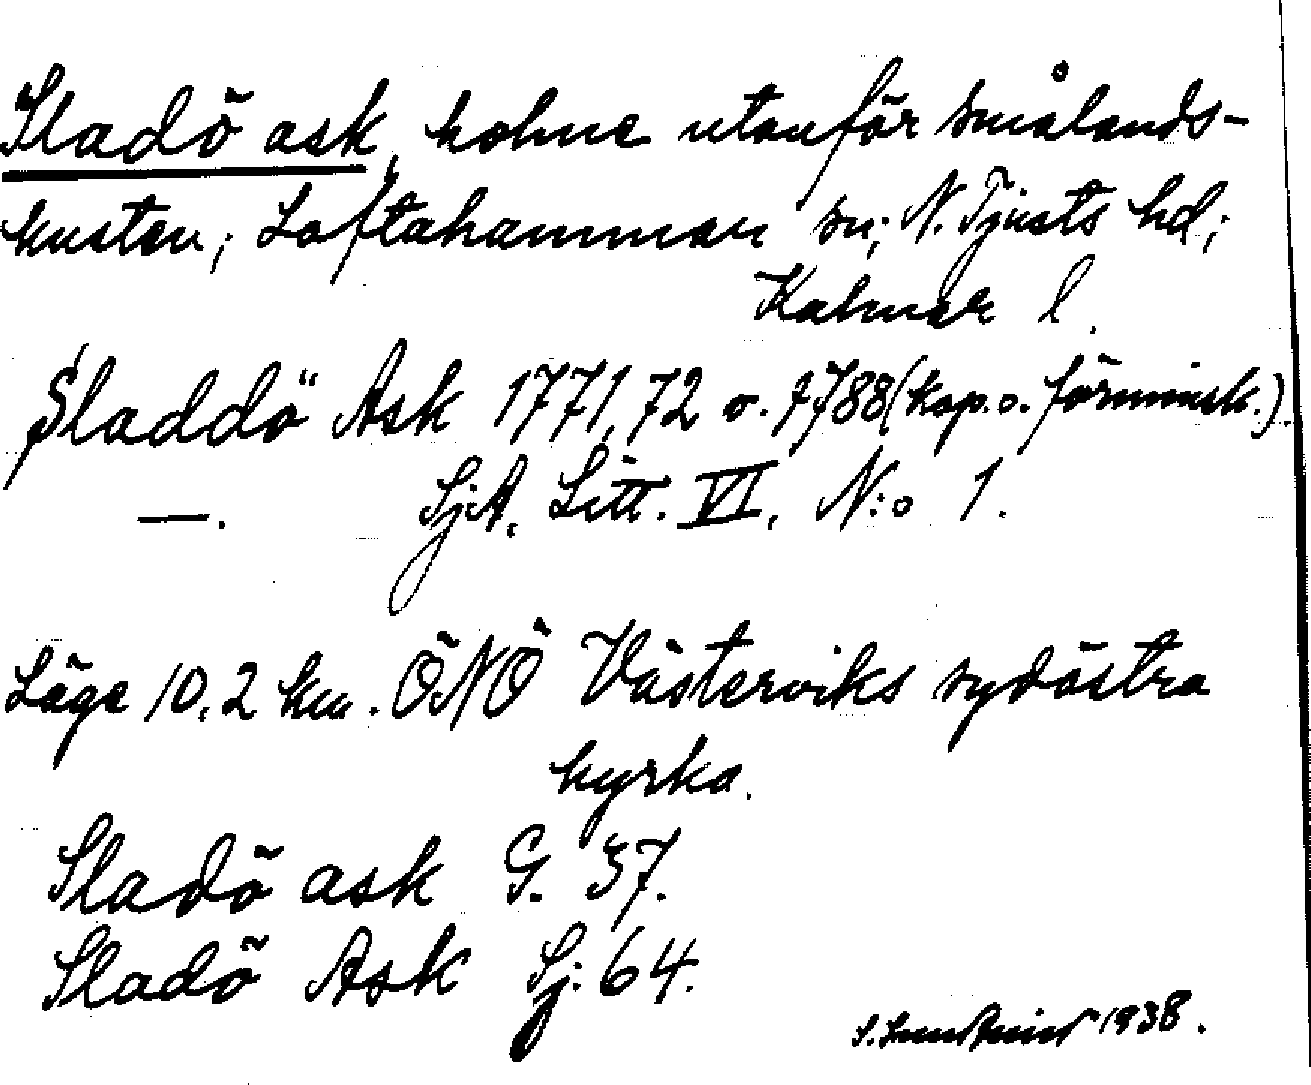 Sladö ask, kolme utanför smålands-
kusten; Loftahammar sn; N. Tjusts hd;
Kalmar l.
Sladdö Ask 1771, 72 o. 1788 (kop. o. förminsk.).
—. SjA. Litt. VI, N:o 1.
Läge 10,2 km. ÖNÖ Västerviks sydöstra
kyrka.
Sladö ask G. 37.
Sladö Ask Sj. 64.
1938.